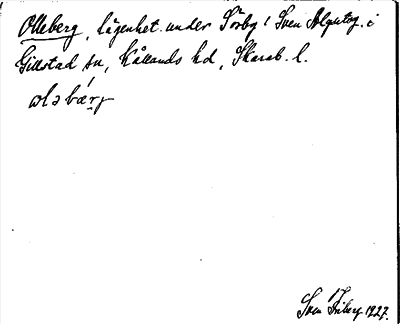 Olleberg, lägenhet under Sörby! Sven Algutsg. i
Gillstad sn, Kållands hd, Skarab. l.
Sven 1927.